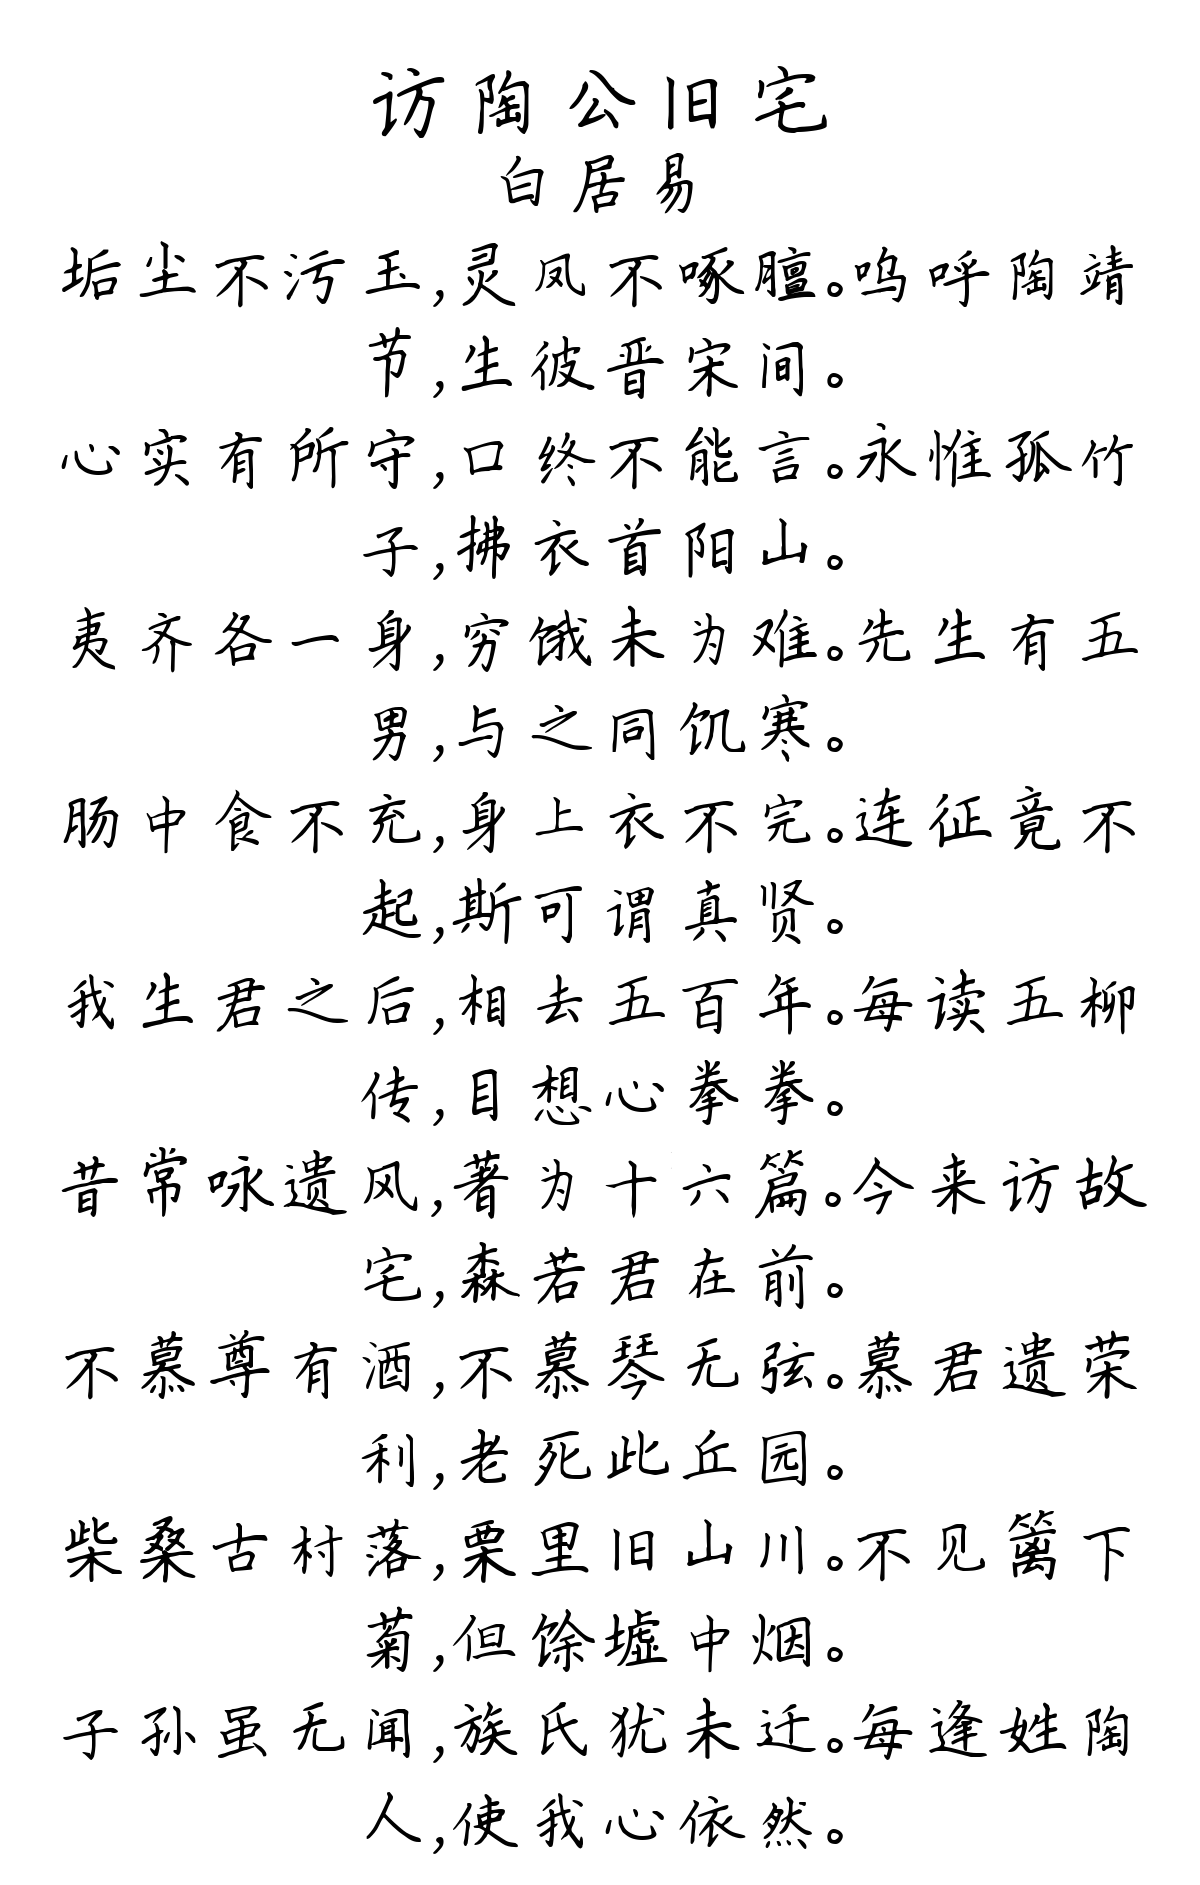 访陶公旧宅
白居易
垢尘不污玉,灵凤不啄膻。呜呼陶靖
节,生彼晋宋间。
心实有所守,口终不能言。永惟孤竹
子,拂衣首阳山。
夷齐各一身,穷饿未为难。先生有五
男,与之同饥寒。
肠中食不充,身上衣不完。连征竟不
起,斯可谓真贤。
我生君之后,相去五百年。每读五柳
传,目想心拳拳。
昔常咏遗风,著为十六篇。今来访故
宅,森若君在前。
不慕尊有酒,不慕琴无弦。慕君遗荣
利,老死此丘园。
柴桑古村落,栗里旧山川。不见篱下
菊,但馀墟中烟。
子孙虽无闻,族氏犹未迁。每逢姓陶
人,使我心依然。